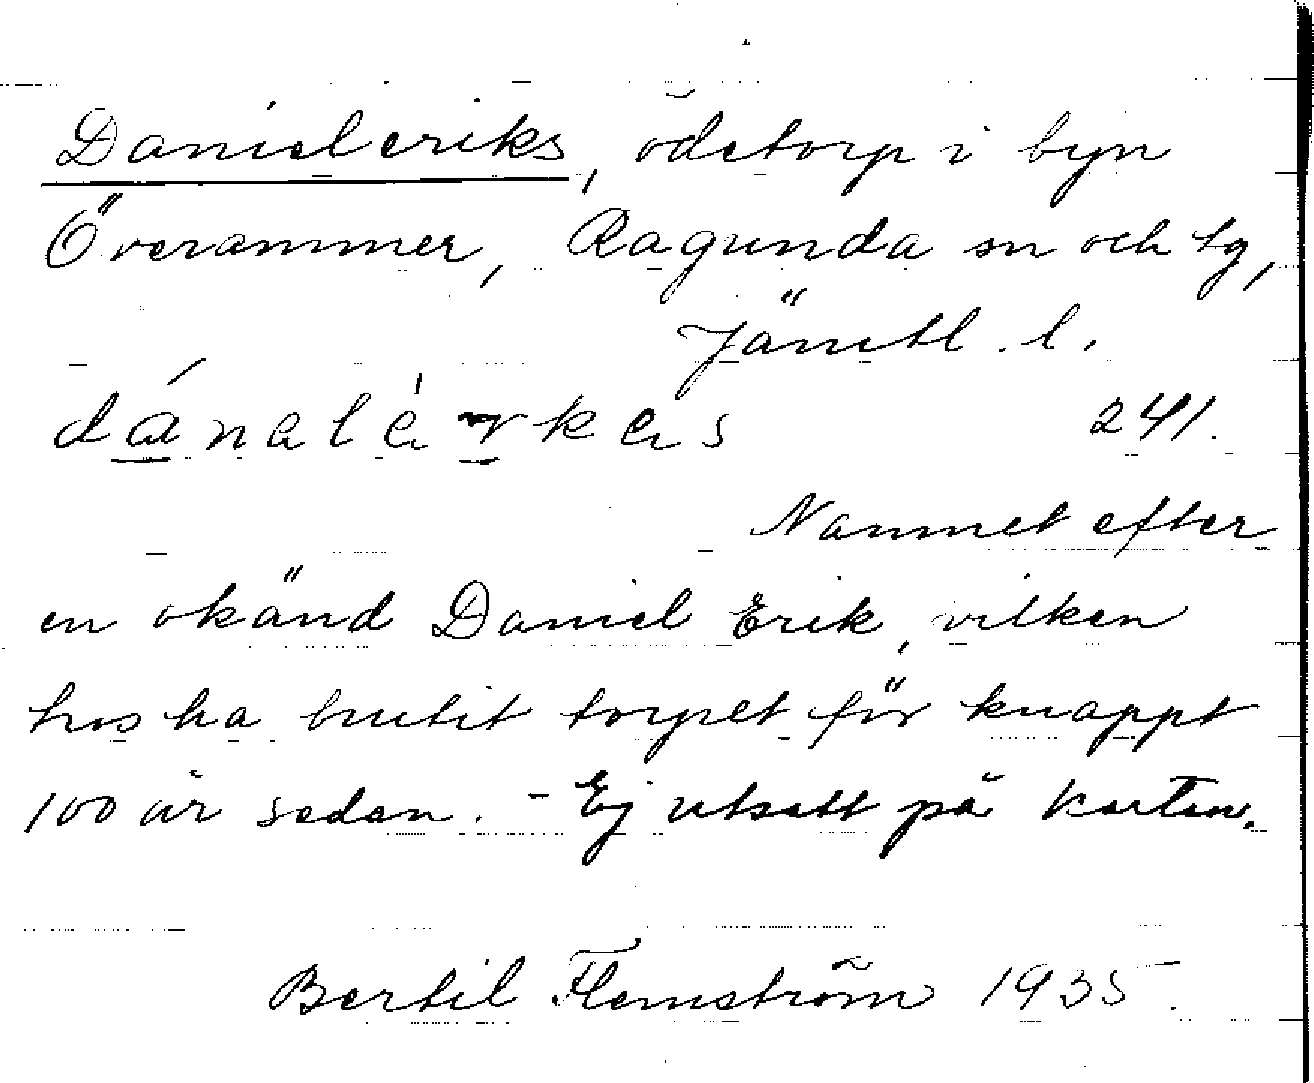 Danieleriks, ödetorp i byn
Överammer, Ragunda sn och tg,
Jämtl. l.
241.
Namnet efter
en okänd Daniel Erik, vilken
hos ha brutit torpet för knappt
100 år sedan. - Ej utsatt på kartan.
Bertil Flemström 1935.